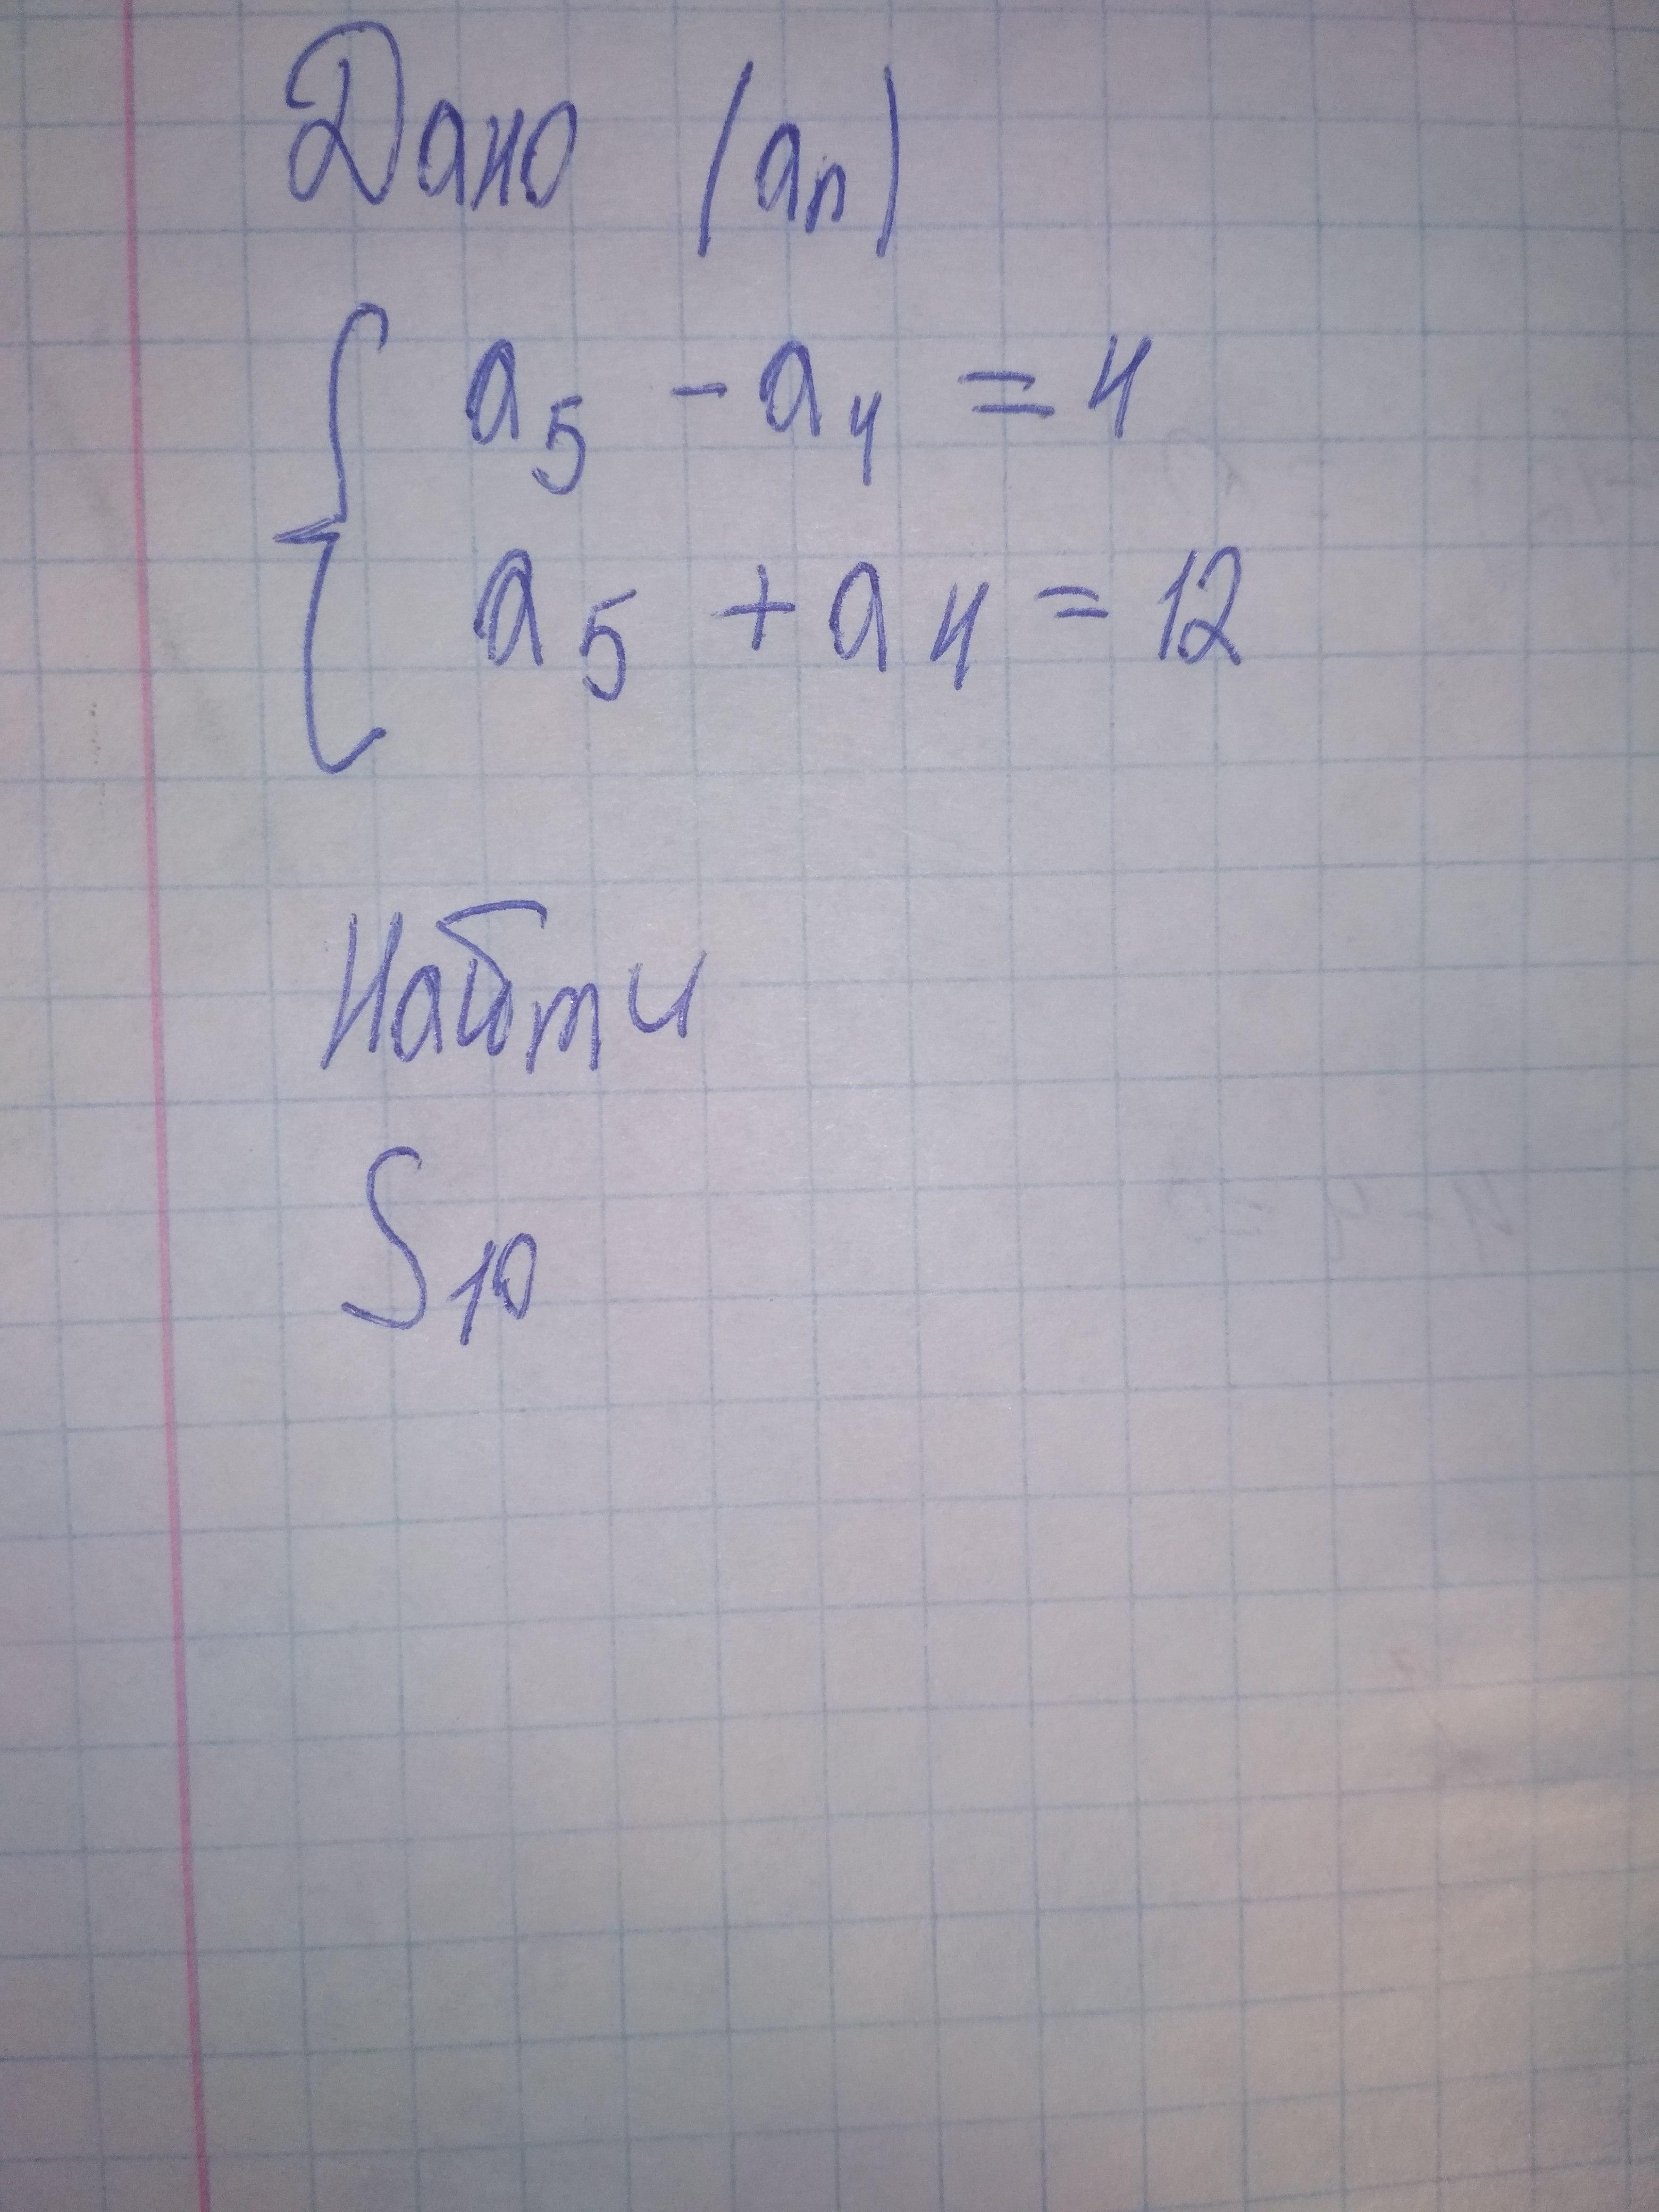 Дано (an)
a5 - a4 = 4
a5 + a4 = 12
Найти
S10